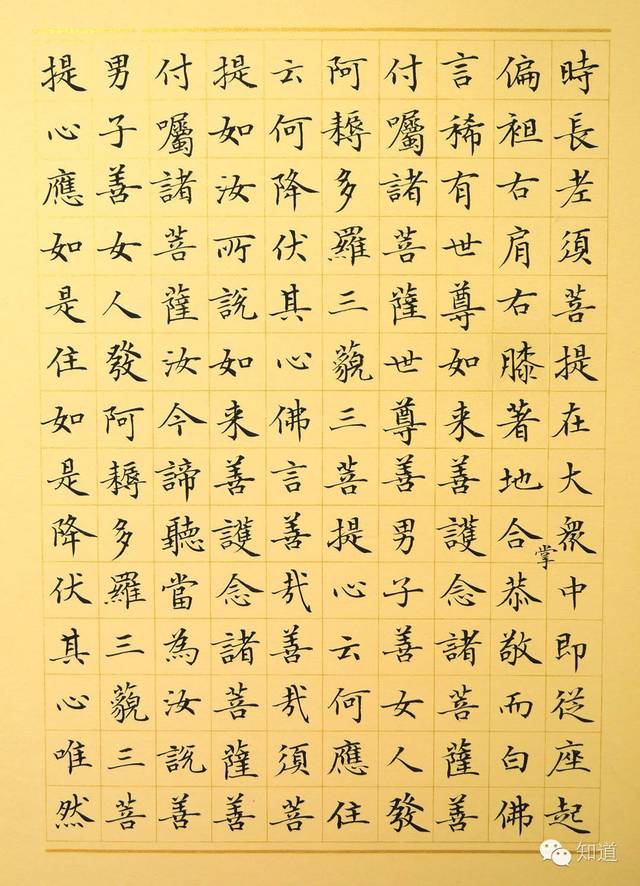 時長老須菩提在大眾中即從座起
偏袒右肩右膝著地合掌恭敬而白佛
言稀有世尊如来善護念諸菩薩善
付囑諸菩薩世尊善男子善女人發
阿耨多羅三藐三菩提心云何應住
云何降伏其心佛言善哉善哉須菩
提如汝所說如来善護念諸菩薩善
付囑諸菩薩汝今諦聽當為汝說善
男子善女人發阿耨多羅三藐三菩
提心應如是住如是降伏其心唯然
知道